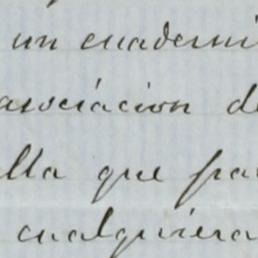 un cuaderni
asociacion de
lla que pa
cualquiera